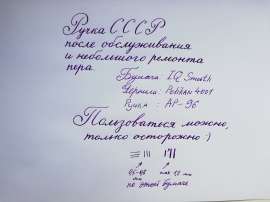 Ручка СССР
после обслуживания
и небольшого ремонта
пера.
Бумага IQ Smooth
Чернила Pelikan 4001
Ручка: АР-96
Пользоваться можно,
только осторожно :)
по этой бумаге